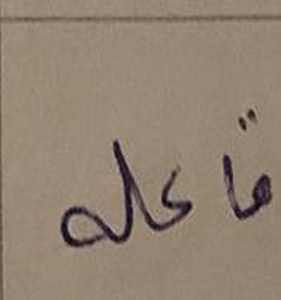 قاكله